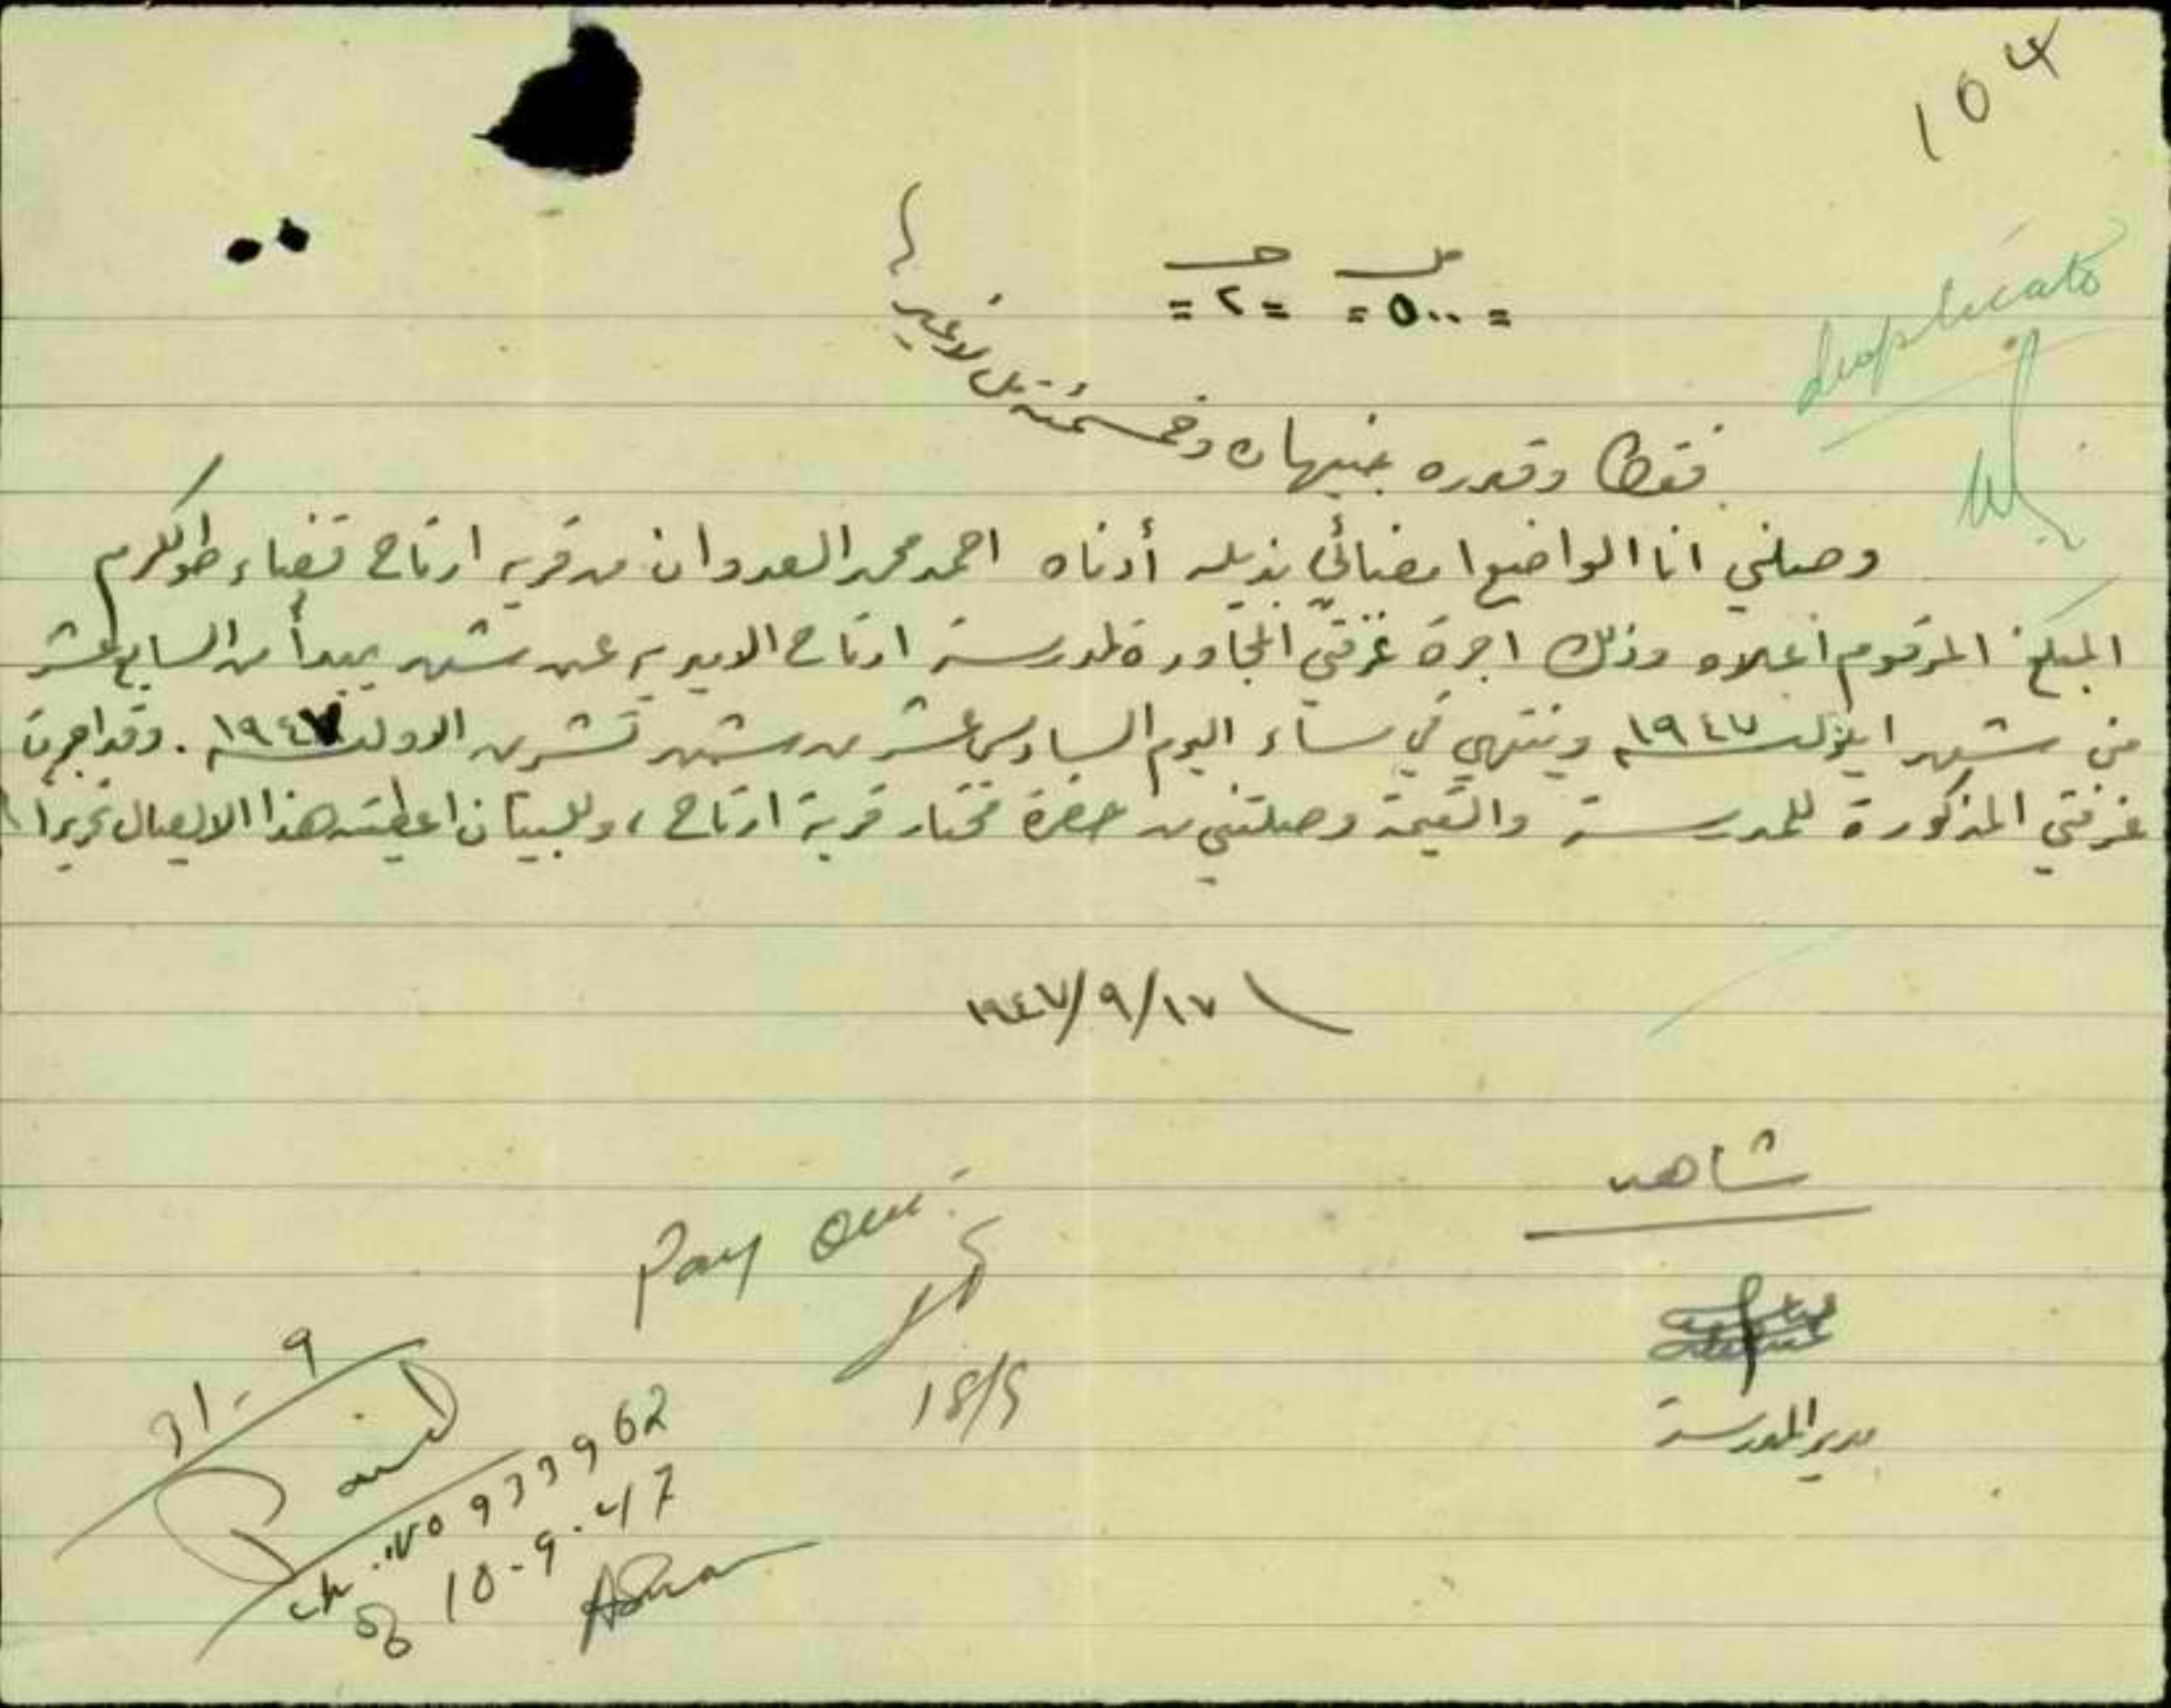 104
duplicate
مل جـ
= ٥٠٠ = = ٢ =
فقط وقدره جنيهان وخمسمئة مل لا غير
وصلني انا الواضع امضائي بذيله أدناه احمد محمد العدوان من قرية ارتاح قضاء طولكرم
المبلغ المرقوم اعلاه وذلك اجرة غرفتي المجاورة لمدرسة ارتاح الاميرية عن شهر يبدأ من السابع عشر
من شهر ايلول سنة ١٩٤٧ وينتهي في مساء اليوم السادس عشر من شهر تشرين الاول سنة ١٩٤٧. وقد اجرت
غرفتي المذكورة للمدرسة والقيمة وصلتني من حضرة مختار قرية ارتاح، وللبيان اعطيته هذا الايصال تحريرا
١٩٤٧/٩/١٧
شاهد
مدير المدرسة
Pay
18/9
31-9
ch. No 933962
of 10-9-47